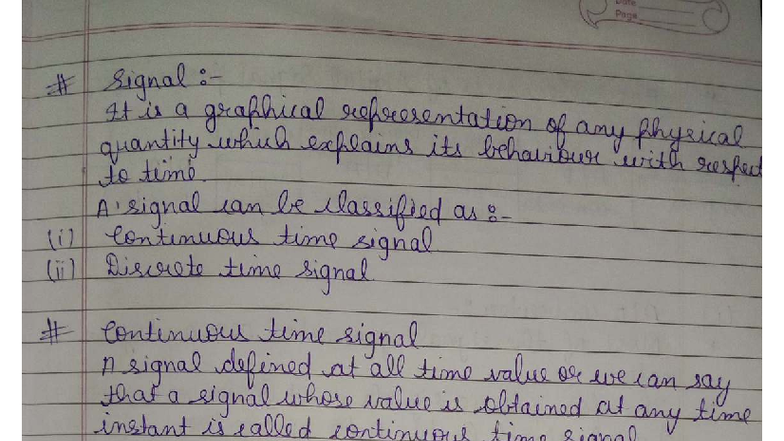 Date
Page
# Signal :-
It is a graphical representation of any physical
quantity which explains its behaviour with respect
to time.
A signal can be classified as :-
(i) Continuous time signal
(ii) Discrete time signal
# Continuous time signal
A signal defined at all time value or we can say
that a signal whose value is obtained at any time
instant is called continuous time signal